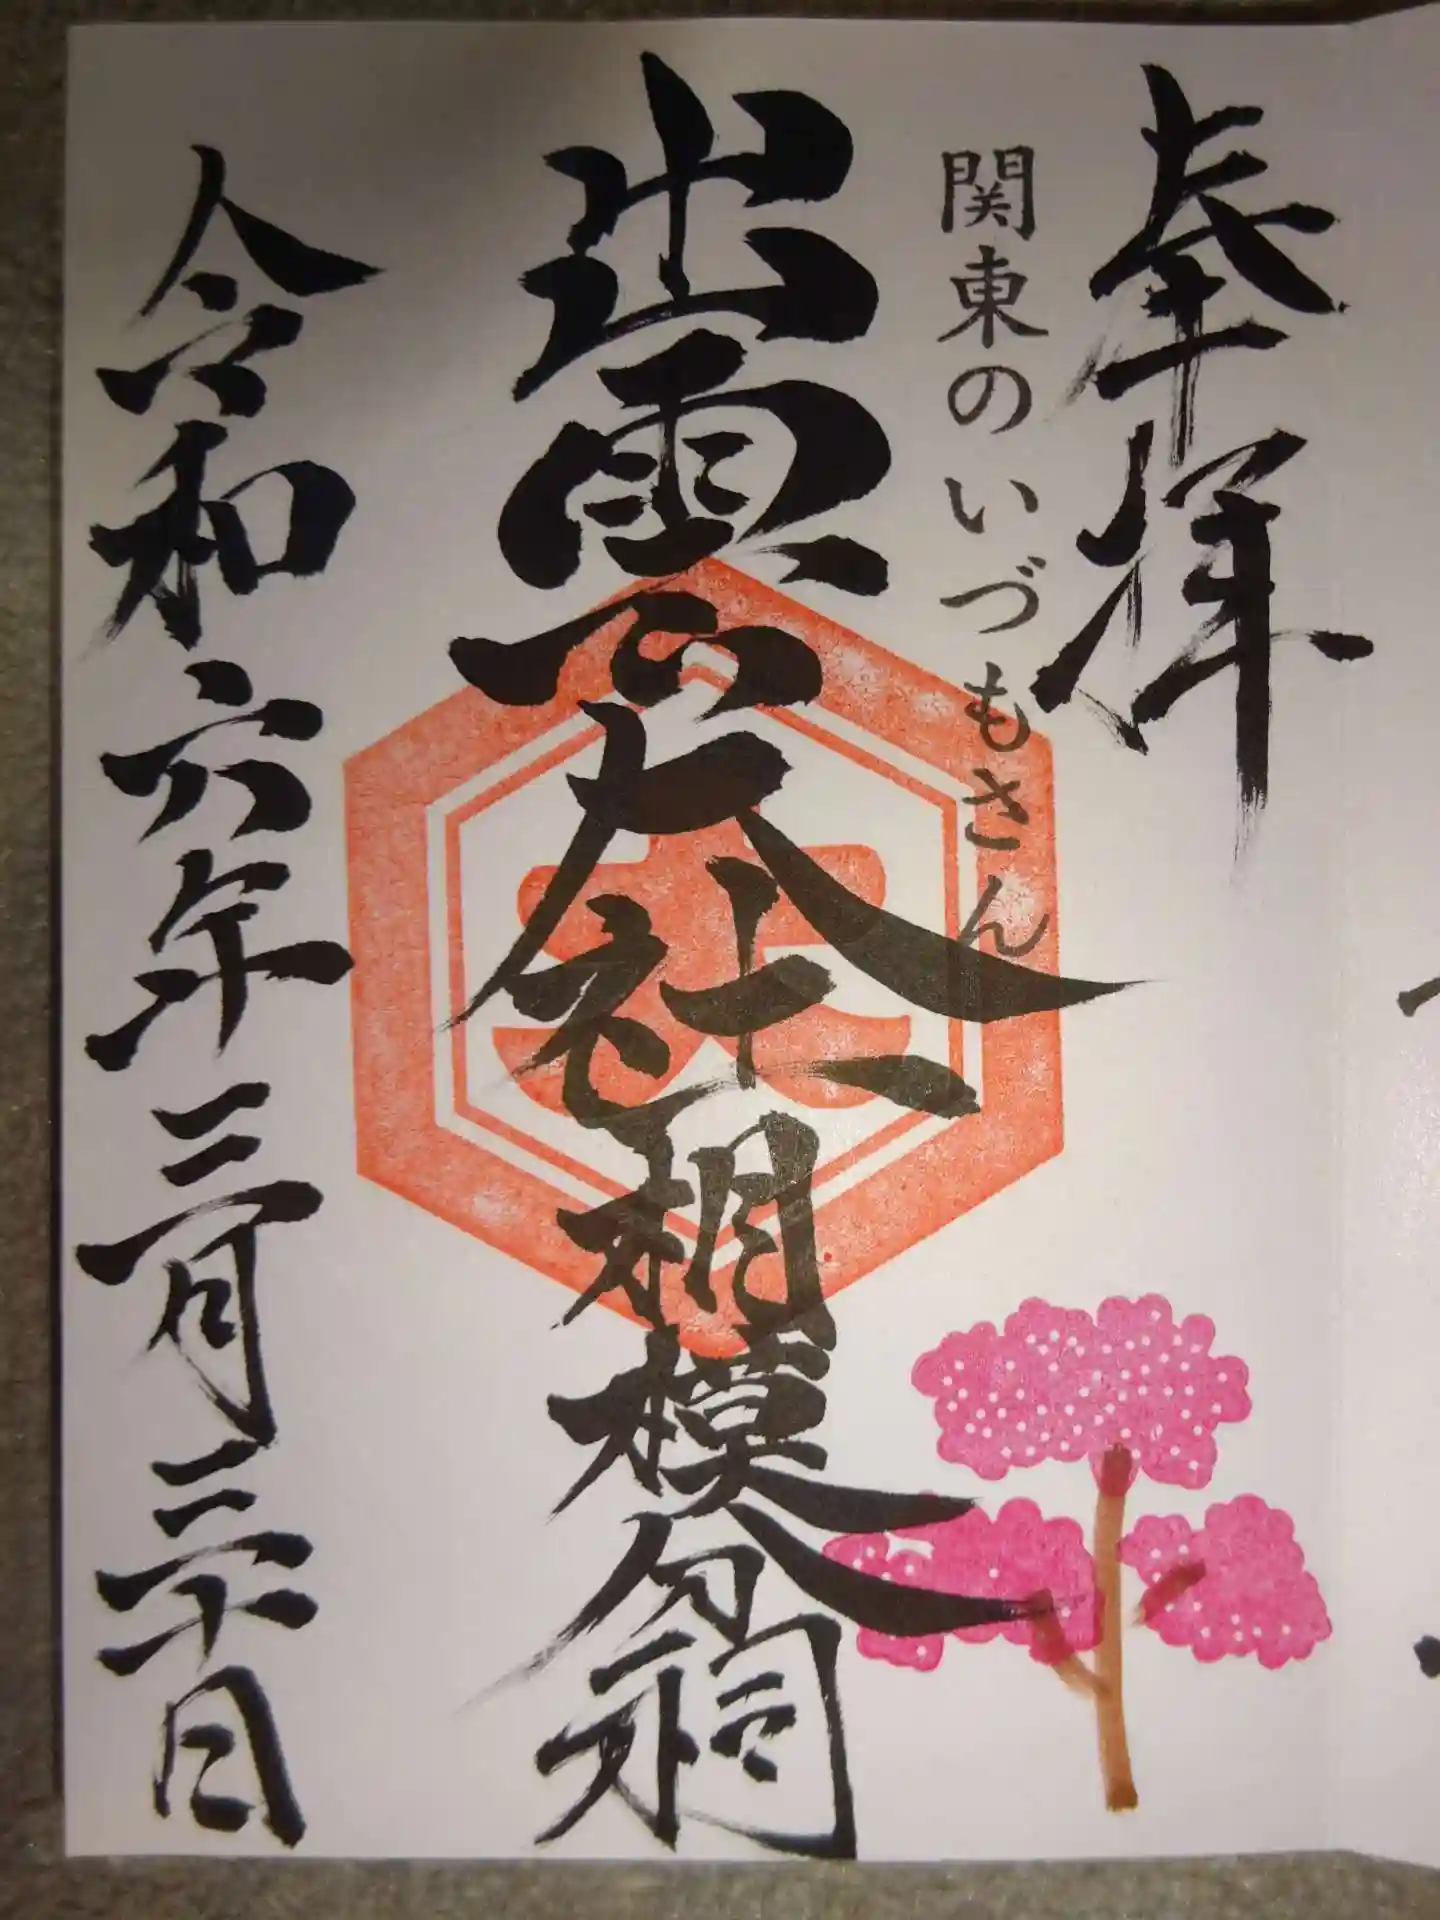 奉拝
関東のいづもさん
出雲大社相模分祠
令和六年三月三十日
大